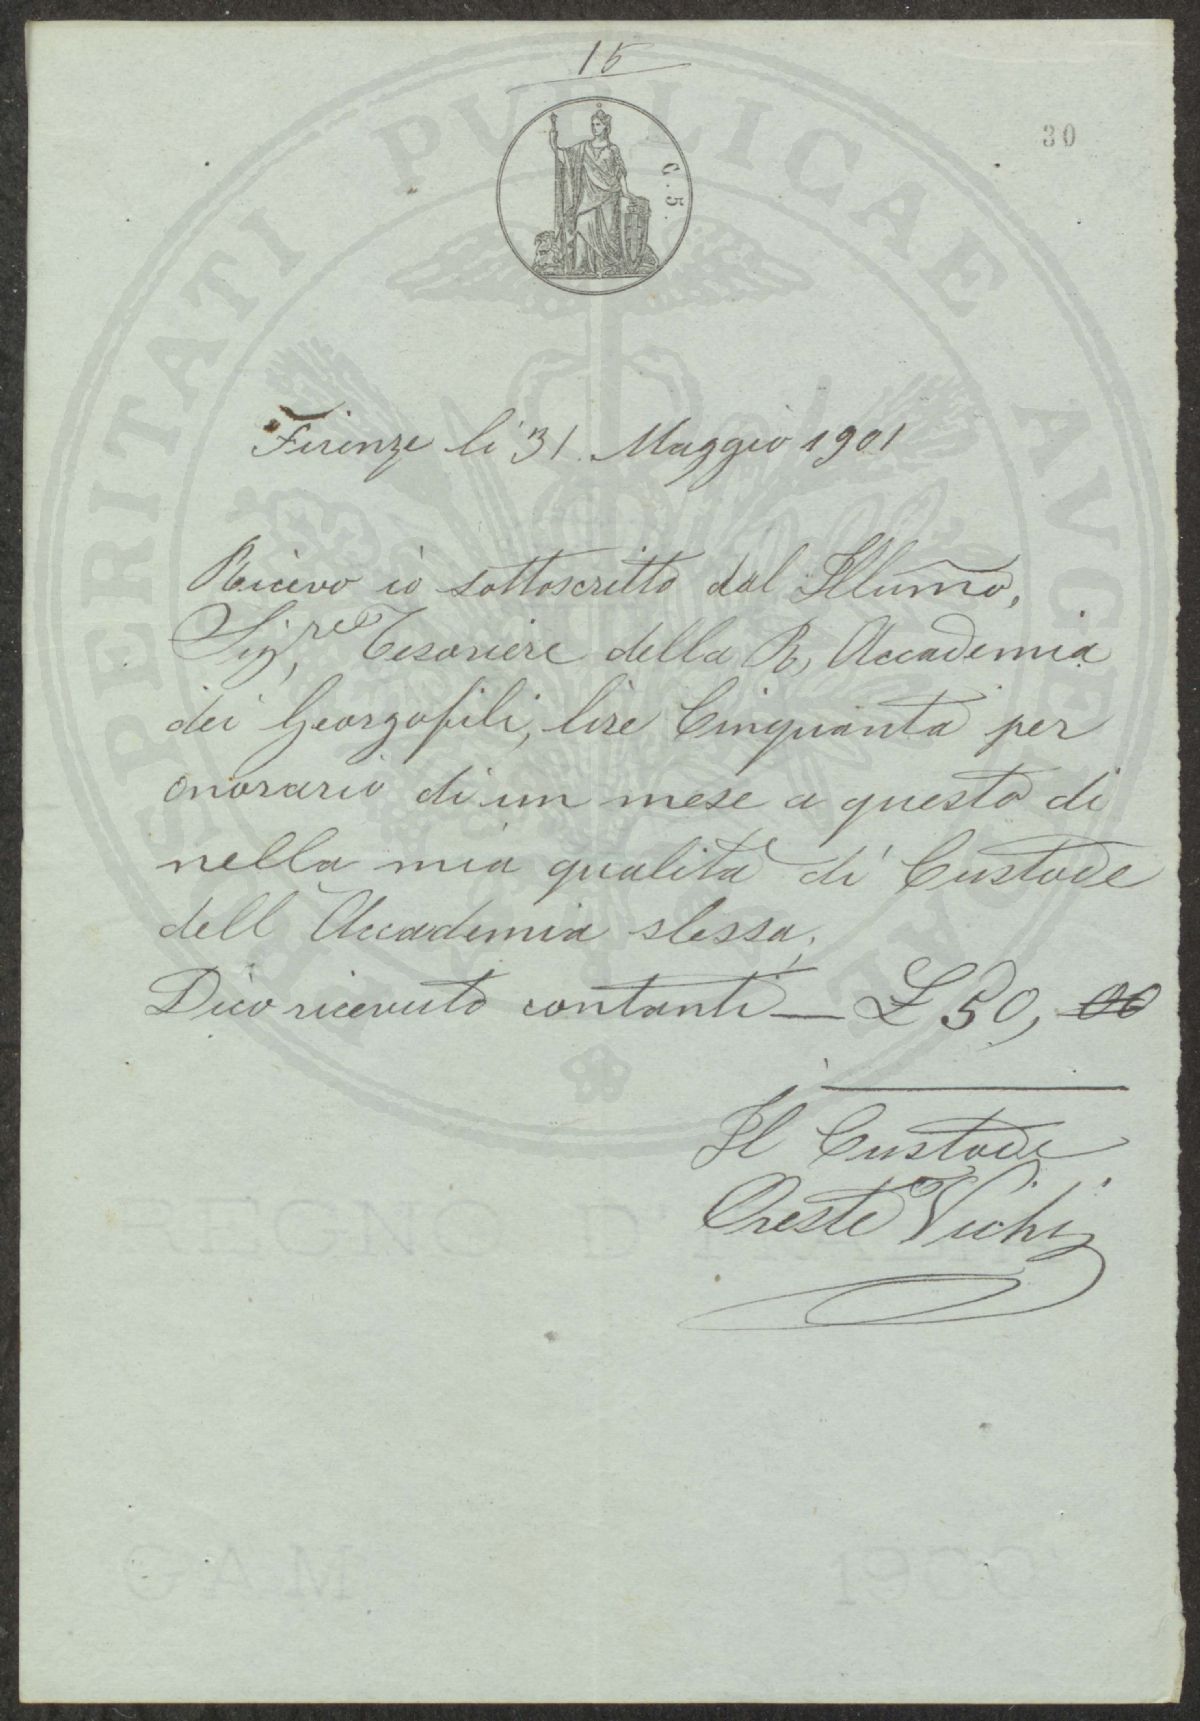 15
C. 5.
30
PROSPERITATI PUBLICAE AVGENDAE
Firenze li 31 Maggio 1901
Ricevo io sottoscritto dal Illumo,
Sig,re Tesoriere della R, Accademia
dei Georgofili, lire Cinquanta per
onorario di un mese a questo di
nella mia qualità di Custode
dell Accademia stessa,
Dico ricevuto contanti — £ 50, 00
Il Custode
Oreste Vichi
REGNO D'ITALIA
GAM 1900